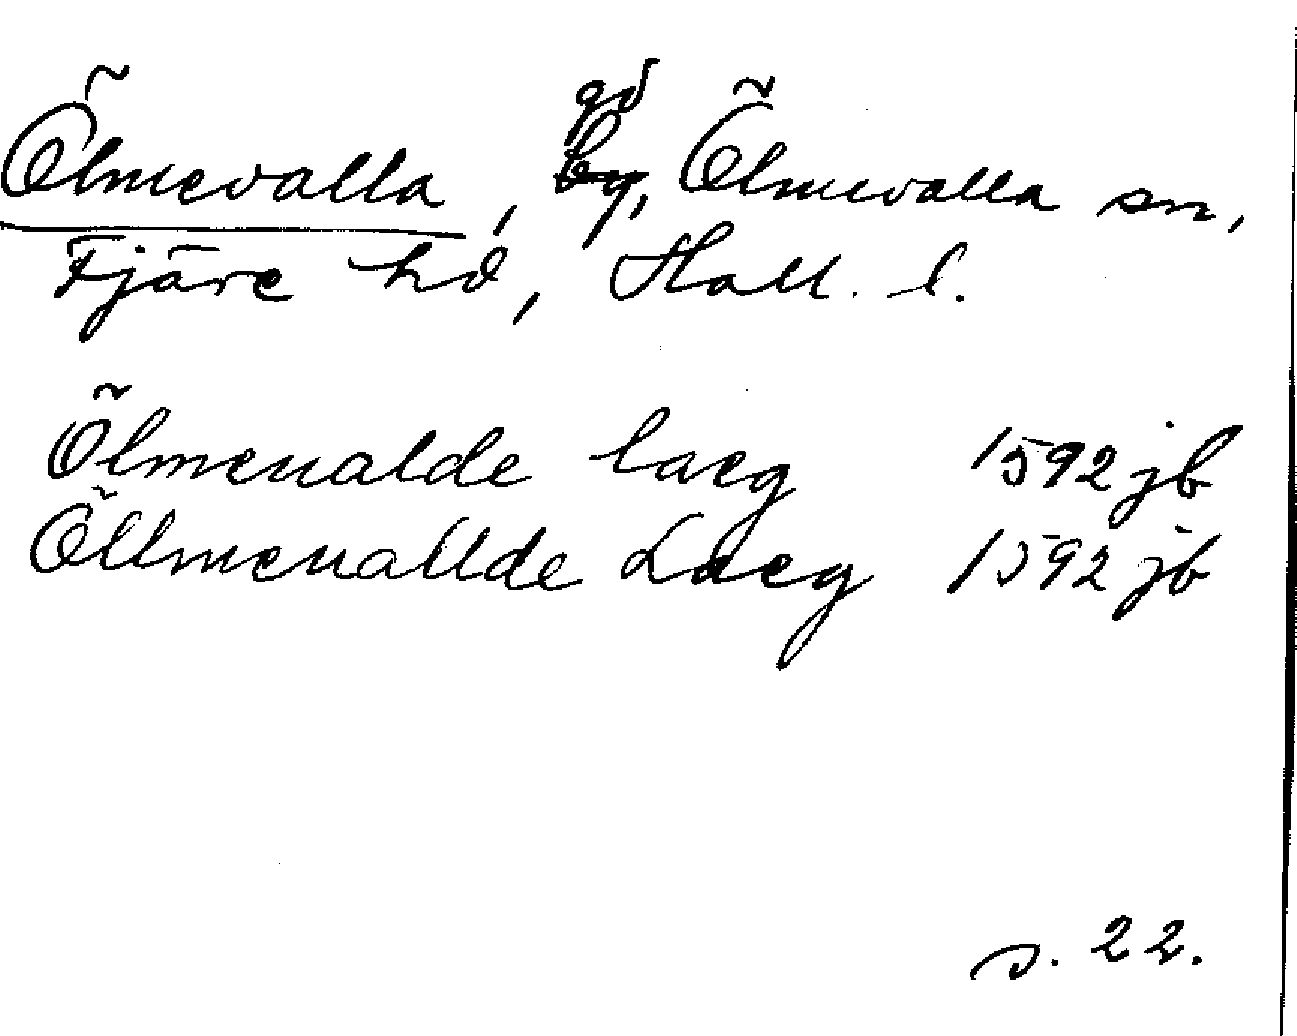 Ölmevalla, gd by, Ölmevalla sn,
Fjäre hd, Hall. l.
Ölmeualde laeg 1592 jb
Öllmeuallde Laeg 1592 jb
s. 22.